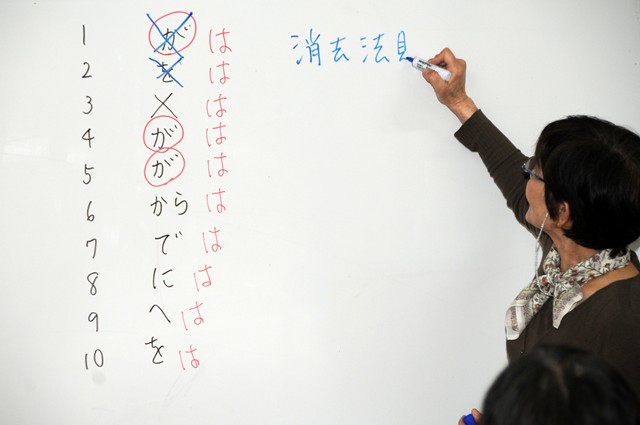 1 が は
2 を は
3 × は
4 が は
5 が は
6 から は
7 で は
8 に は
9 へ は
10 を は
消去法見